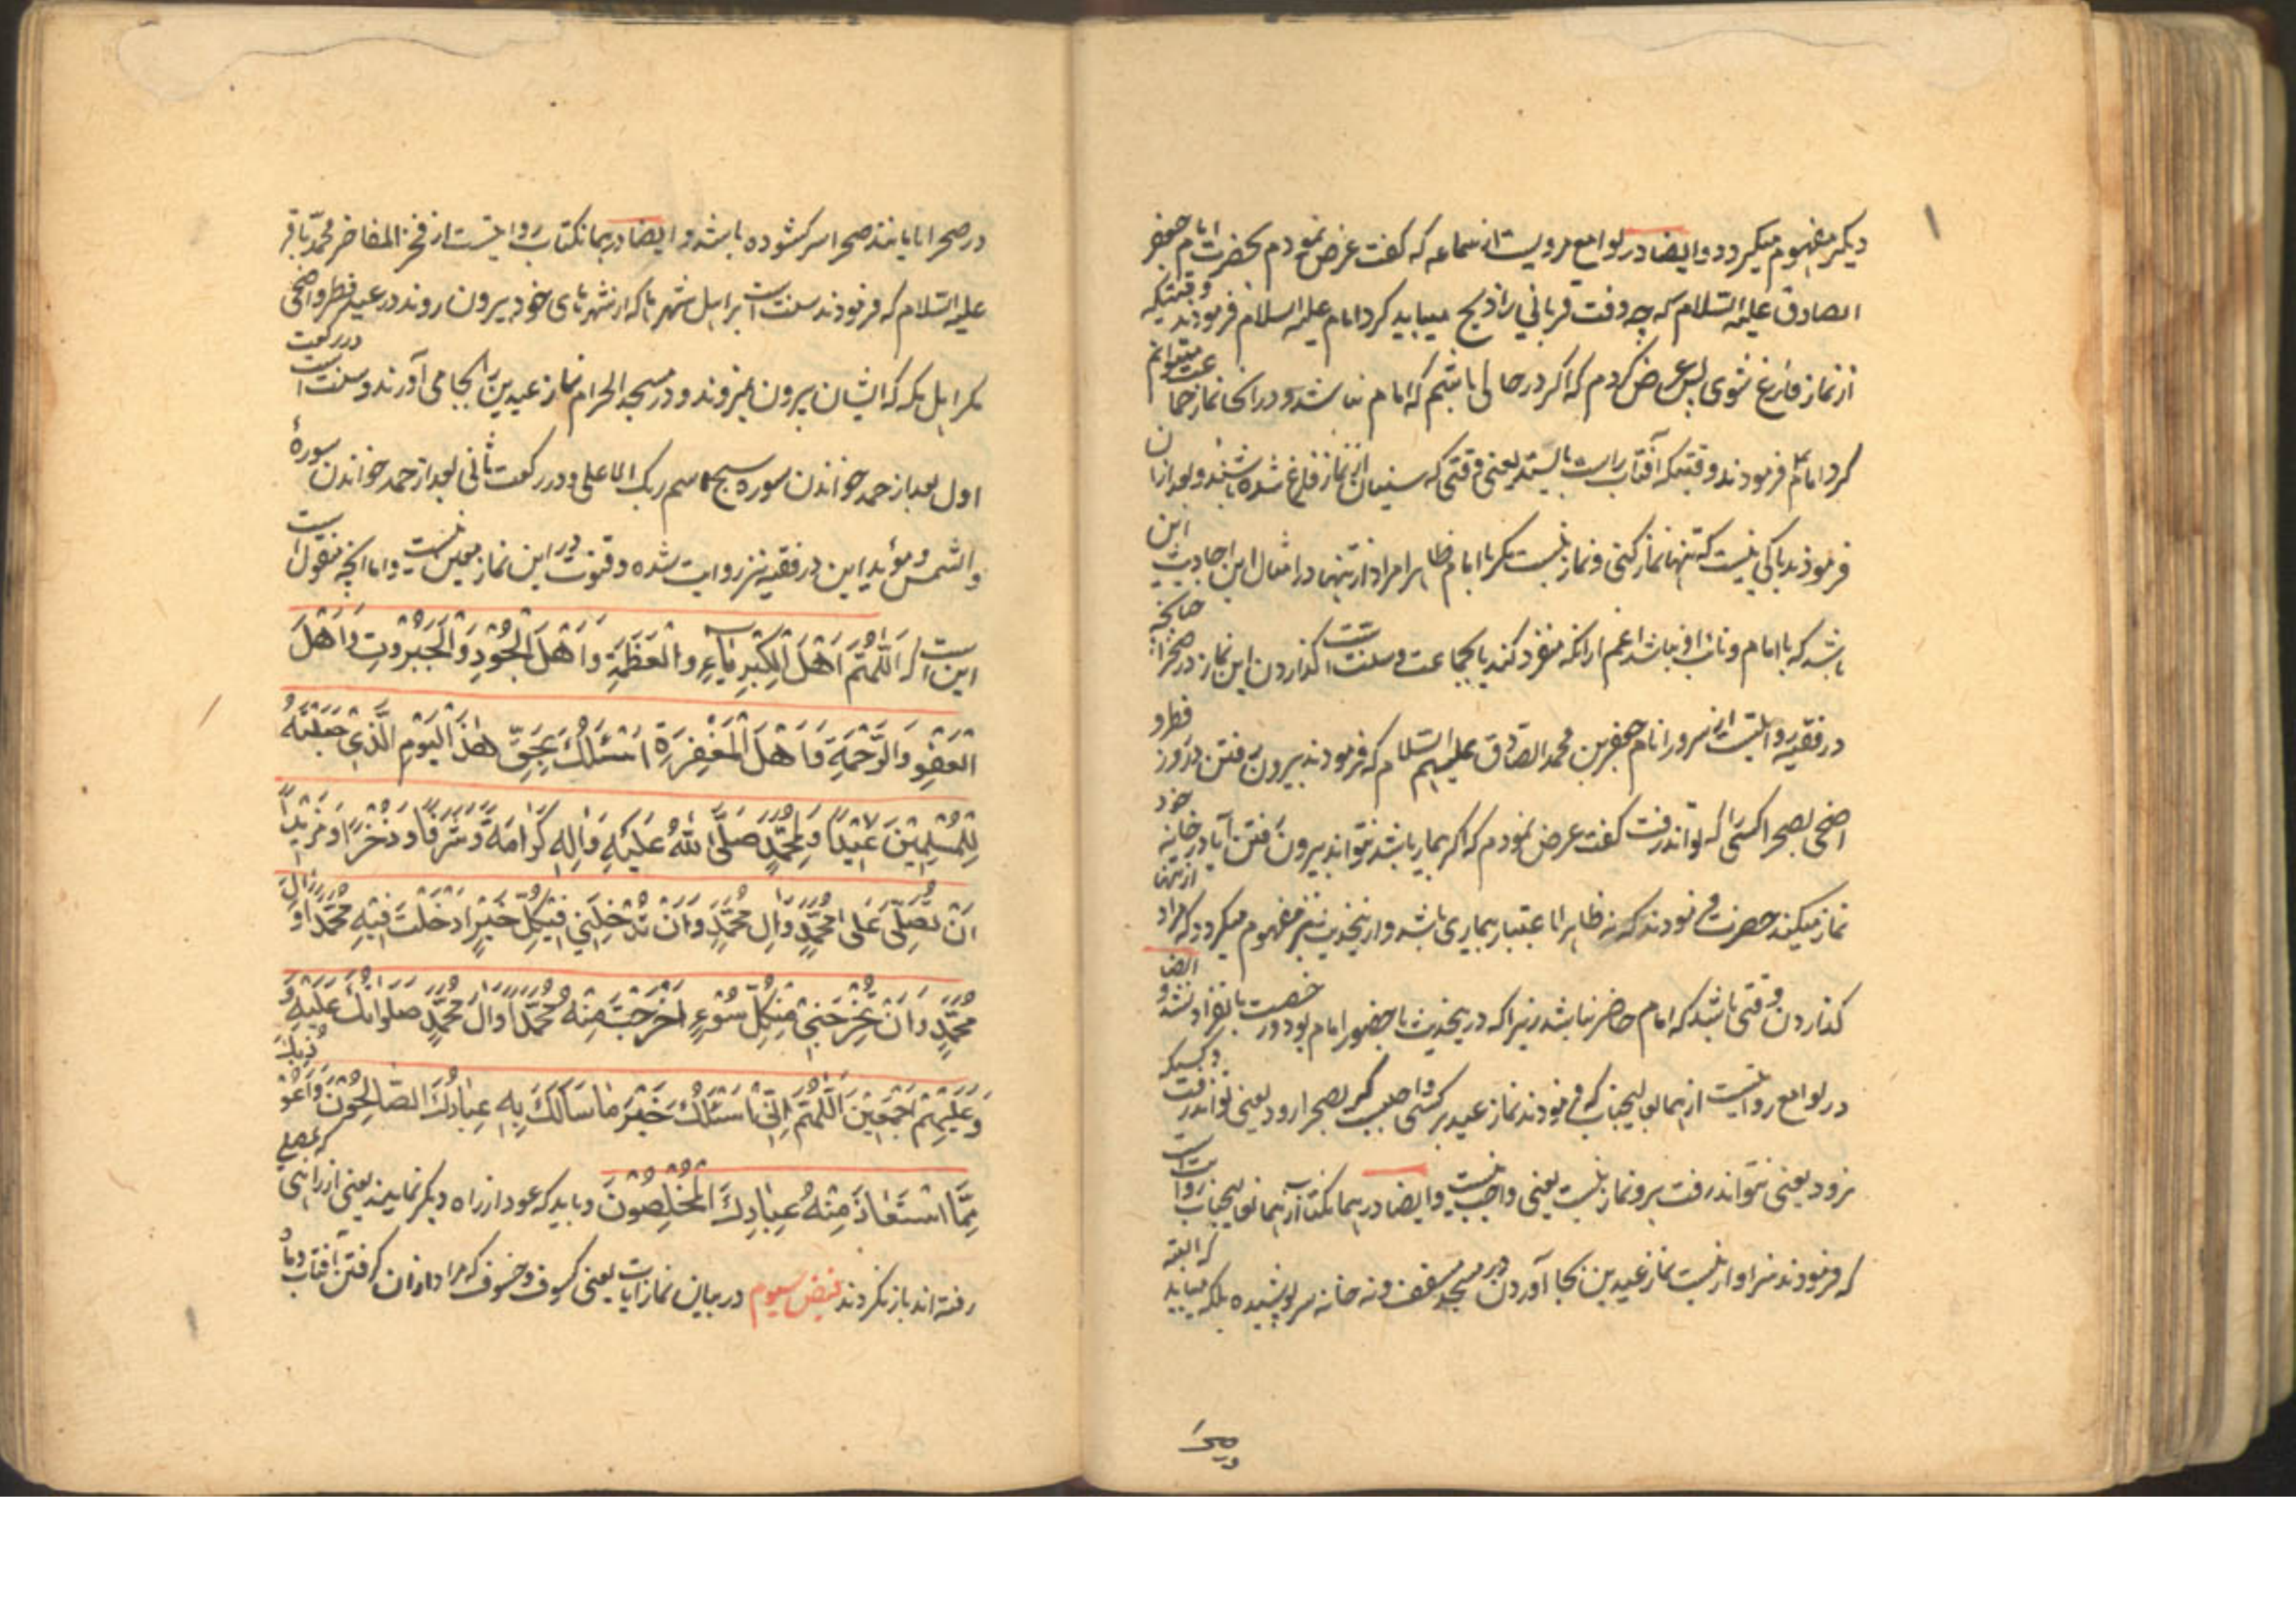 دیکر مفهوم میکردد و ایضا در لوامع مرویست از سماعه که کفت عرض نمودم بحضرت امام جعفر
الصادق علیه السلام که چه وقت قربانی را ذبح میباید کرد امام علیه السلام فرمودند وقتیکه
از نماز فارغ شوی پس عرض کردم که اکر در جائی باشم که امام نباشد و در انجا نماز جماعت میتوانم
کرد امام فرمودند وقتیکه آفتاب راست بایستد یعنی وقتی که سنیان از نماز فارغ شده باشند و بعد از ان
فرمودند باکی نیست که تنها نماز کنی و نماز نیست مکر با امام ظاهرا مراد از تنها در امثال این احادیث این
باشد که با امام و نائب او نباشد اعم از انکه منفرد کند یا بجماعت و سنت است کذاردن این نماز در صحرا چنانچه
در فقیه روایتست از سرور انام جعفر بن محمد الصادق علیهم السلام که فرمودند بیرون رفتن در روز فطر و
اضحی بصحرا کسی راست که تواند رفت کفت عرض نمودم که اکر بیمار باشد نتواند بیرون رفتن آیا در خانه خود
نماز میکند حضرت فرمودند که نه ظاهرا با اعتبار بیماری باشد و از ینحدیث نیز مفهوم میکردد که مراد از تنها
کذاردن وقتی باشد که امام حاضر نباشد زیرا که در ینحدیث با حضور امام بود و رخصت بانفراد نشد و ایضا
در لوامع روایتست از همان عالیجناب که فرمودند نماز عید بر کسی واجبست که بصحرا رود یعنی تواند رفت و کسیکه
نرود یعنی نتواند رفت برو نماز نیست یعنی واجب نیست و ایضا در همان کتاب از همان عالیجناب روایت است
که فرمودند سزاوار نیست نماز عیدین بجا آوردن در مسجد مسقف و نه خانه سر پوشیده بلکه میباید که البته
در صحرا
در صحرا یا مانند صحرا سر کشوده باشد و ایضا در همان کتاب روایتست از فخر المفاخر محمد باقر
علیه السلام که فرمودند سنت است بر اهل شهرها که از شهرهای خود بیرون روند در عید فطر و اضحی
مکر اهل مکه که ایشان بیرون نمیروند و در مسجد الحرام نماز عیدین را بجا می آورند و سنت است در رکعت
اول بعد از حمد خواندن سوره سبح اسم ربک الاعلی و در رکعت ثانی بعد از حمد خواندن سورهٔ
والشمس و مؤید این در فقیه نیز روایت شده و قنوت در این نماز معین نیست و اما انچه منقول است
این است که اَللّهُمَّ اَهْلَ الْکِبْرِیاءِ وَ الْعَظَمَةِ وَ اَهْلَ الْجُوْدِ وَ الْجَبَرُوْتِ وَ اَهْلَ
الْعَفْوِ وَ الرَّحْمَةِ وَ اَهْلَ الْمَغْفِرَةِ اَسْئَلُکَ بِحَقِّ هٰذَ الْیَوْمِ الَّذِیْ جَعَلْتَهُ
لِلْمُسْلِمِیْنَ عِیْدًا وَ لِمُحَمَّدٍ صَلَّی اللهُ عَلَیْهِ وَ اٰلِهِ کَرَامَةً وَ شَرَفًا وَ ذُخْرًا وَ مَزِیْدًا
اَنْ تُصَلِّیَ عَلی مُحَمَّدٍ وَ اٰلِ مُحَمَّدٍ وَ اَنْ تُدْخِلَنِیْ فِیْ کُلِّ خَیْرٍ اَدْخَلْتَ فِیْهِ مُحَمَّدًا وَ اٰلَ
مُحَمَّدٍ وَ اَنْ تُخْرِجَنِیْ مِنْ کُلِّ سُوْءٍ اَخْرَجْتَ مِنْهُ مُحَمَّدًا وَ اٰلَ مُحَمَّدٍ صَلَوٰاتُکَ عَلَیْهِ وَ
وَ عَلَیْهِمْ اَجْمَعِیْنَ اَللّهُمَّ اِنِّی اَسْئَلُکَ خَیْرَ مَا سَاَلَکَ بِهِ عِبَادُکَ الصَّالِحُوْنَ وَ اَعُوْذُ بِکَ
مِمَّا اسْتَعَاذَ مِنْهُ عِبَادِکَ الْمُخْلِصُوْنَ و باید که عود از راه دیکر نمایند یعنی از راهی که بمصلی
رفته اند باز نکردند فیض سیوم در بیان نماز ایات یعنی کسوف و خسوف که مراد از ان کرفتن آفتاب و ماه